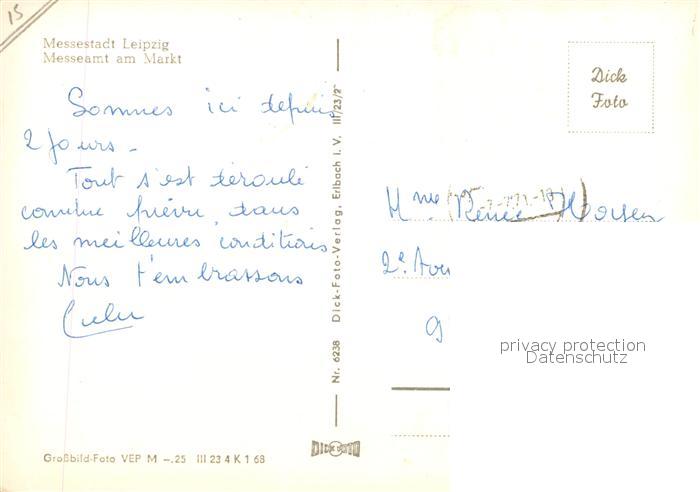 15
Messestadt Leipzig
Messeamt am Markt
Dick
Foto
Sommes ici depuis
2 jours.
Tout s'est déroulé
comme prévu, dans
les meilleures conditions
Nous t'embrassons
Mme Renée
2e
Nr. 6238 Dick-Foto-Verlag, Erlbach i. V. III/23/2
privacy protection
Datenschutz
DICK FOTO
Großbild-Foto VEP M -.25 III 23 4 K 1 68